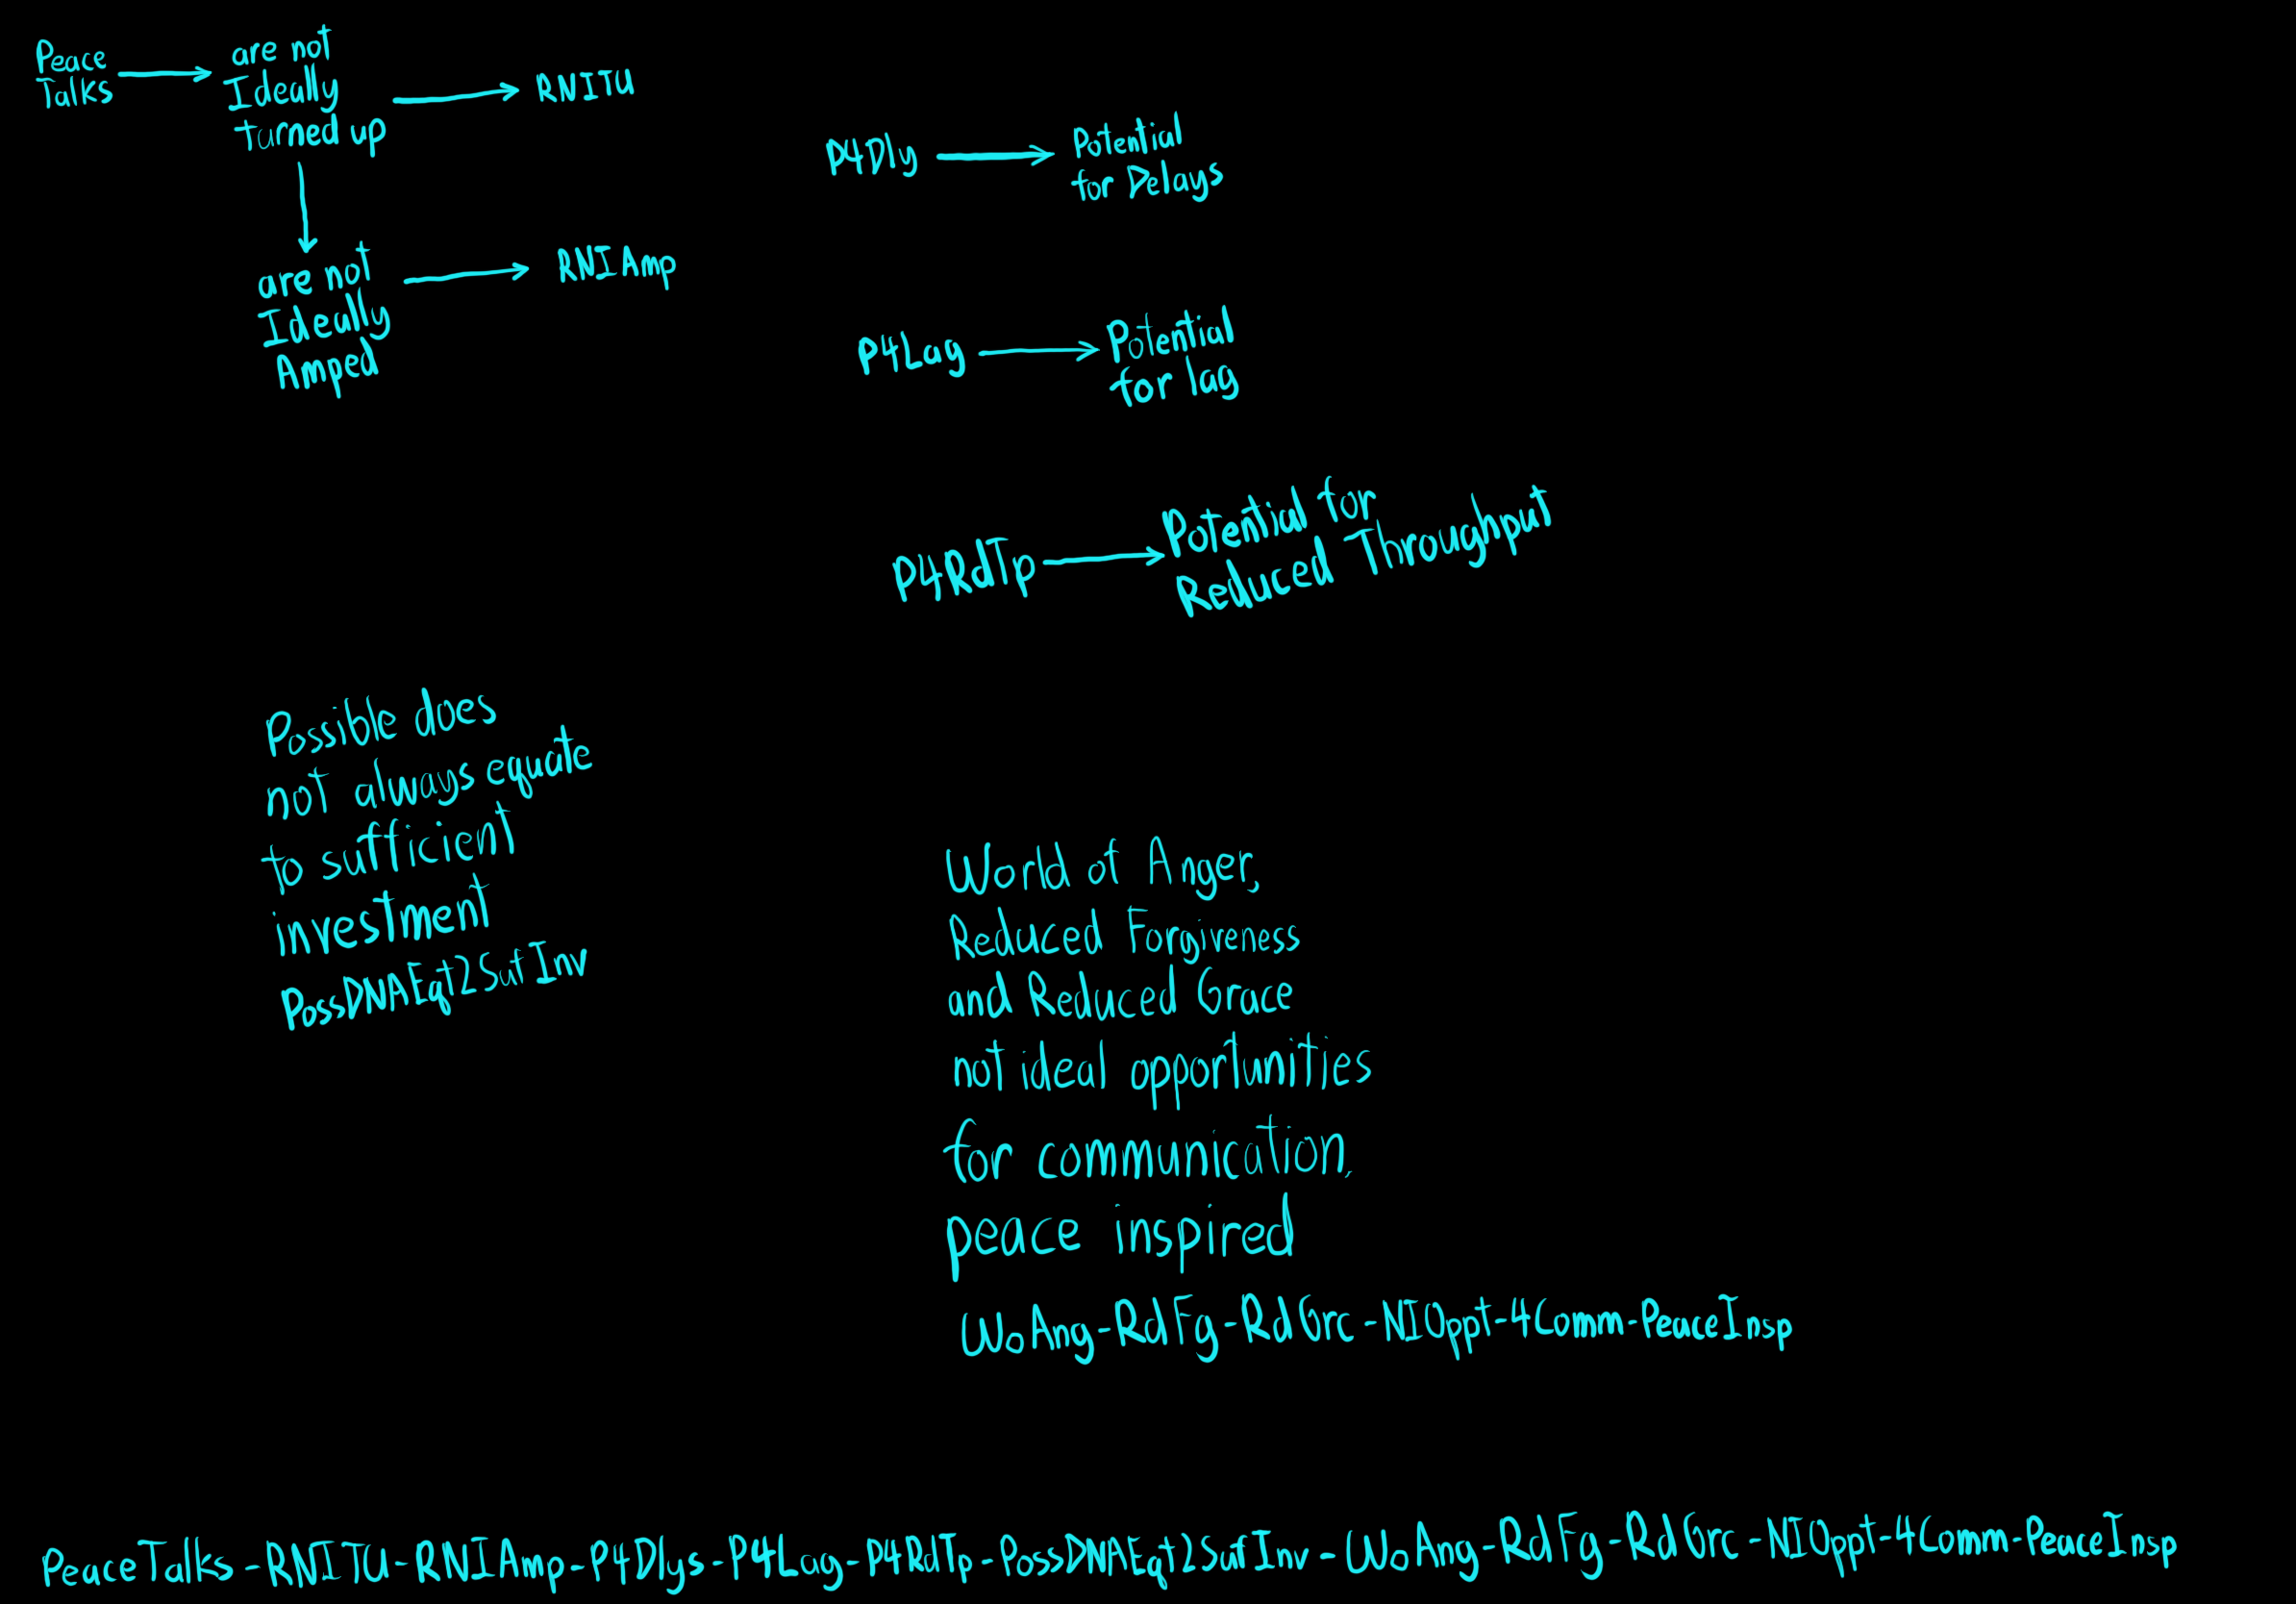 Peace
Talks
are not
Ideally
turned up
RNITU
are not
Ideally
Amped
RNIAmp
P4Dly
Potential
for Delays
P4Lag
Potential
for lag
P4RdTp
Potential for
Reduced Throughput
Possible does
not always equate
to sufficient
investment
PossDNAEqt2SufInv
World of Anger,
Reduced Forgiveness
and Reduced Grace
not ideal opportunities
for communication,
peace inspired
WoAng-RdFg-RdGrc-NIOppt-4Comm-PeaceInsp
PeaceTalks-RNITU-RNIAmp-P4Dlys-P4Lag-P4RdTp-PossDNAEqt2SufInv-WoAng-RdFg-RdGrc-NIOppt-4Comm-PeaceInsp